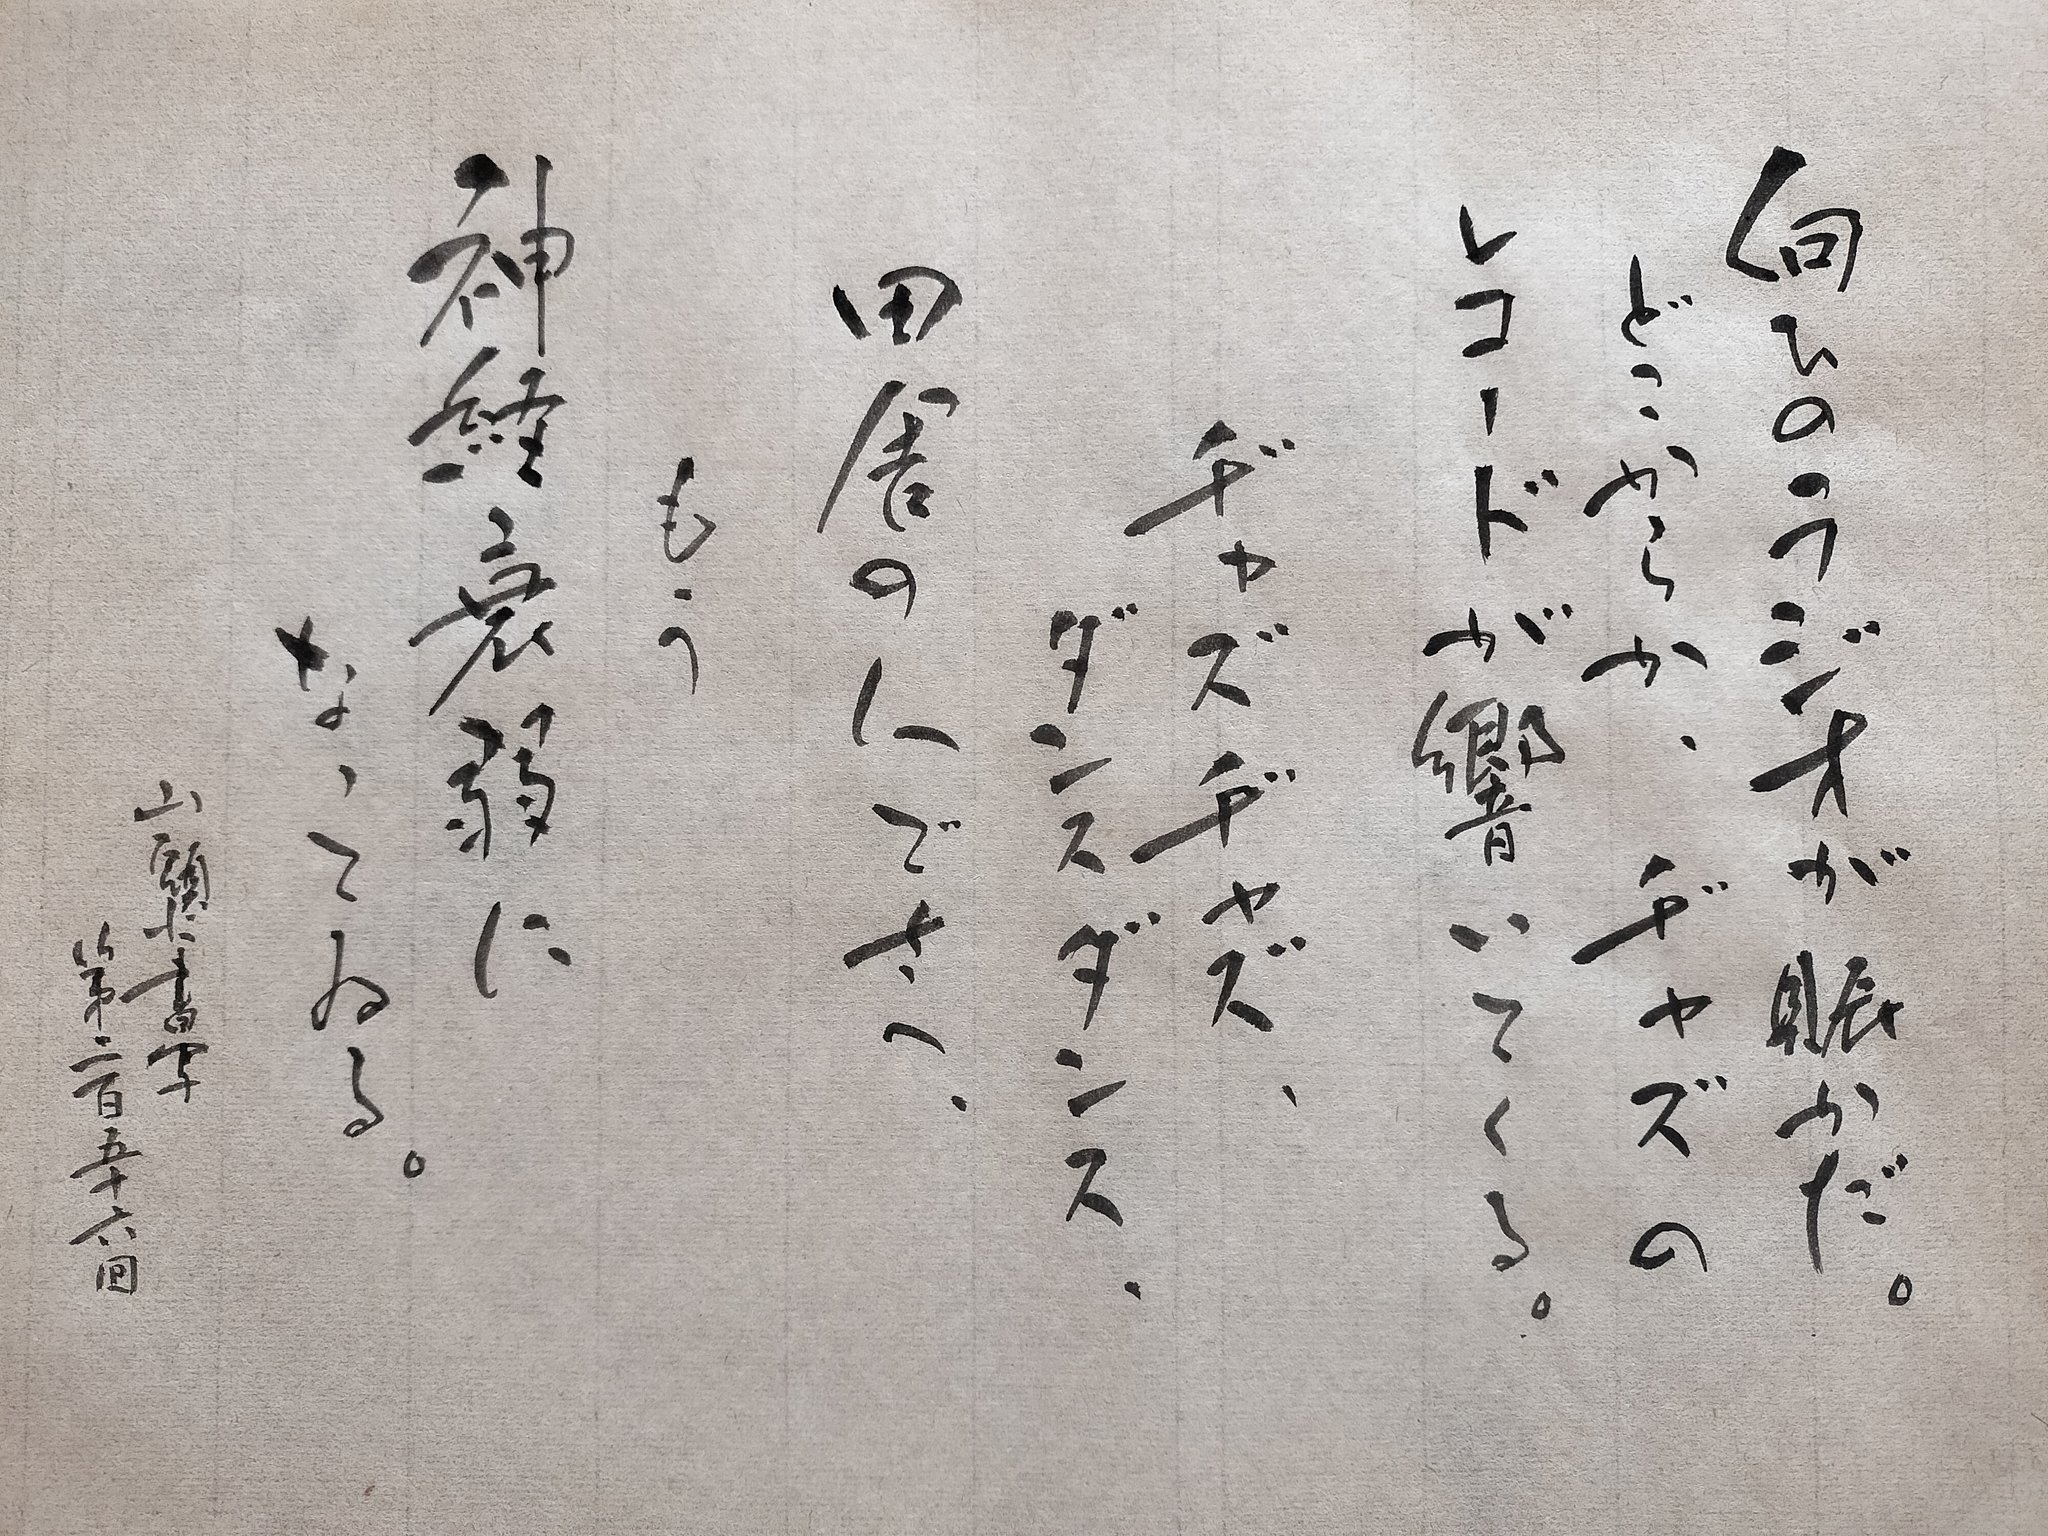 向ひのラジオが賑かだ。
どこからか、ヂャズの
レコードが響いてくる。
ヂャズヂャズ、
ダンスダンス、
田舎の人でさへ、
もう
神経衰弱に
なつてゐる。
山頭火書写
第二百五十六回